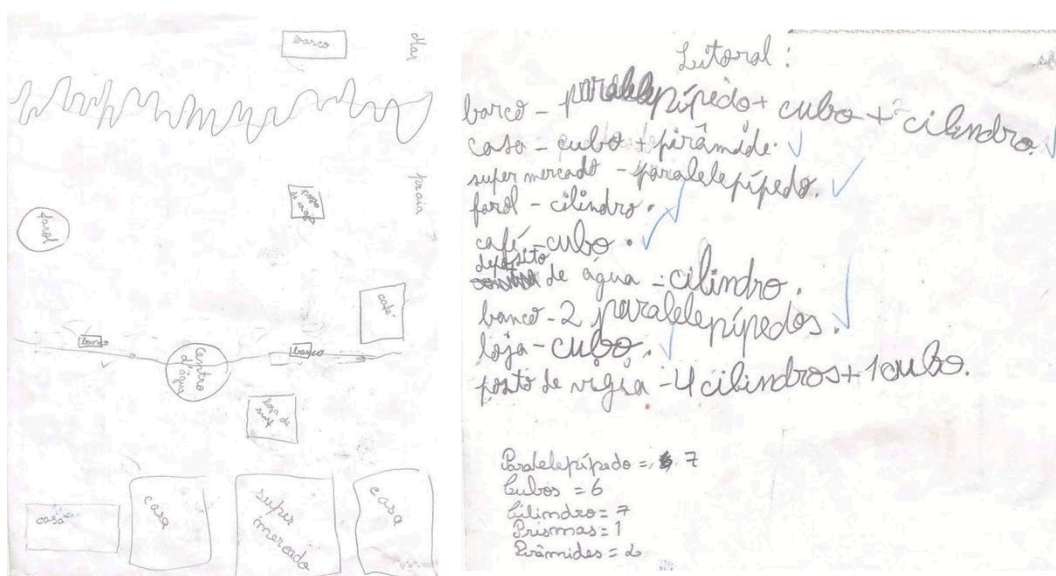 barco
Mar
praia
posto de vigia
farol
café
banco
centro d'água
banco
loja de surf
casa
casa
super mercado
casa
Litoral:
barco - paralelepípedo + cubo + cilindro.
casa - cubo + pirâmide.
super mercado - paralelepípedo.
farol - cilindro.
café - cubo.
depósito
de água - cilindro.
banco - 2 paralelepípedos.
loja - cubo.
posto de vigia - 4 cilindros + 1 cubo.
Paralelepípedo = 7
Cubos = 6
Cilindro = 7
Prismas = 1
Pirâmides = 2